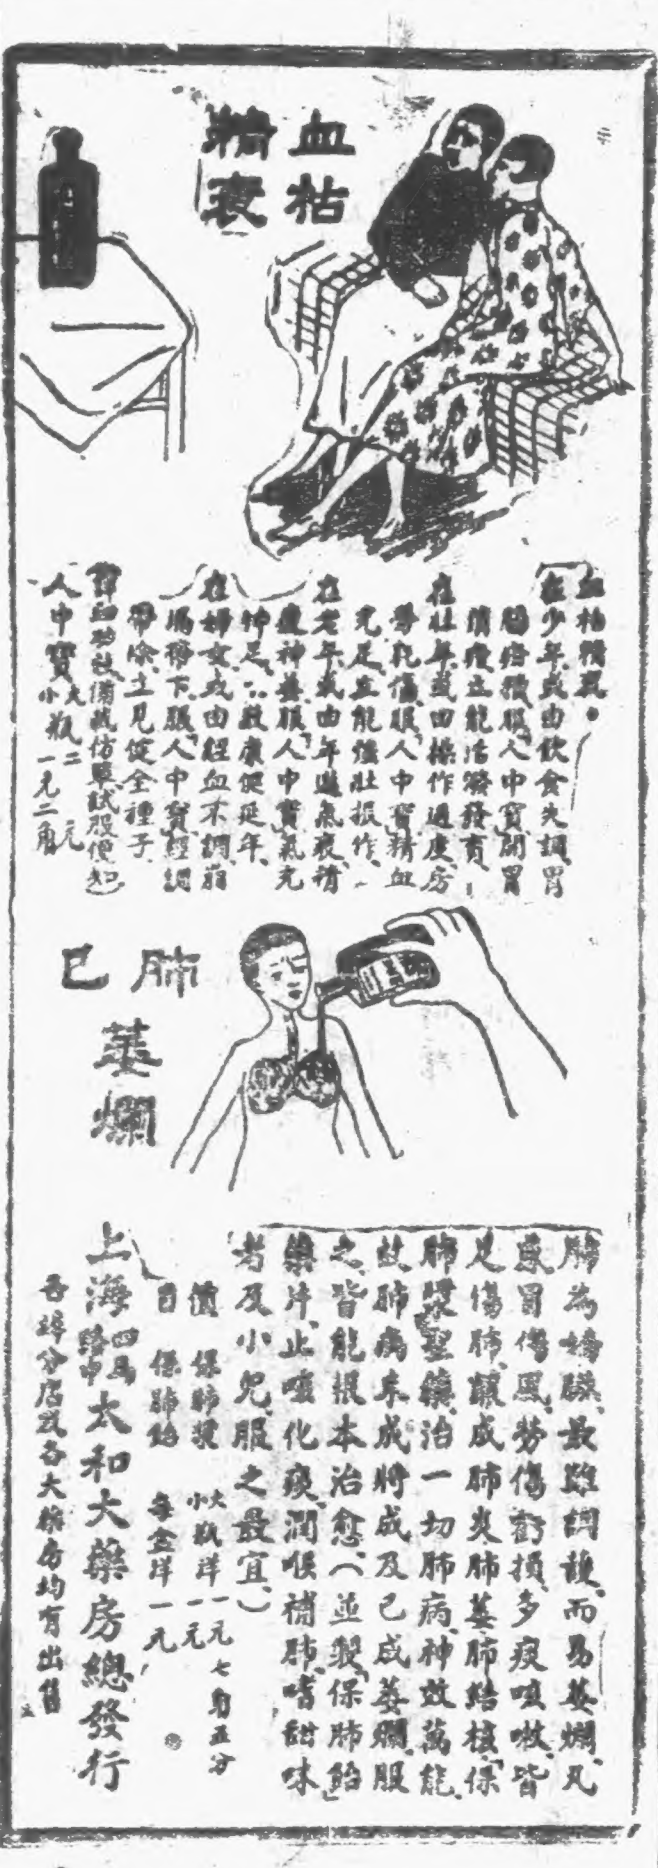 血枯
精衰
血枯精衰。
在少年或由飲食失調、胃
弱痞積、服「人中寶」開胃
消痞、立能活潑發育、
在壯年或因操作過度、房
勞乾傷、服「人中寶」精血
充足、立能强壯振作、
在老年或由年邁氣衰、精
虛神萎、服「人中寶」氣充
神足、八數康健延年、
在婦女或由經血不調、崩
漏帶下、服「人中寶」經調
帶除、立見健全種子、
備仿單試服便知
人中寶 大瓶二元
小 一元二角
肺已
萎爛
肺為嬌臟、最難調護、而易萎爛、凡
感冒傷風、勞傷虧損、多痰咳嗽、皆
足傷肺、釀成肺炎肺萎肺結核、「保
肺漿」聖藥、治一切肺病、神效萬能、
故肺病未成將成及已成萎爛、服
之、皆能根本治愈、（並製「保肺飴」
藥片、止咳化痰、潤喉補肺、嗜甜味
者及小兒、服之最宜、）
價 保肺漿 大瓶洋一元七角五分
小 一元
目 保肺飴 每盒洋一元
上海四馬路中太和大藥房總發行
各埠分店及各大藥房均有出售